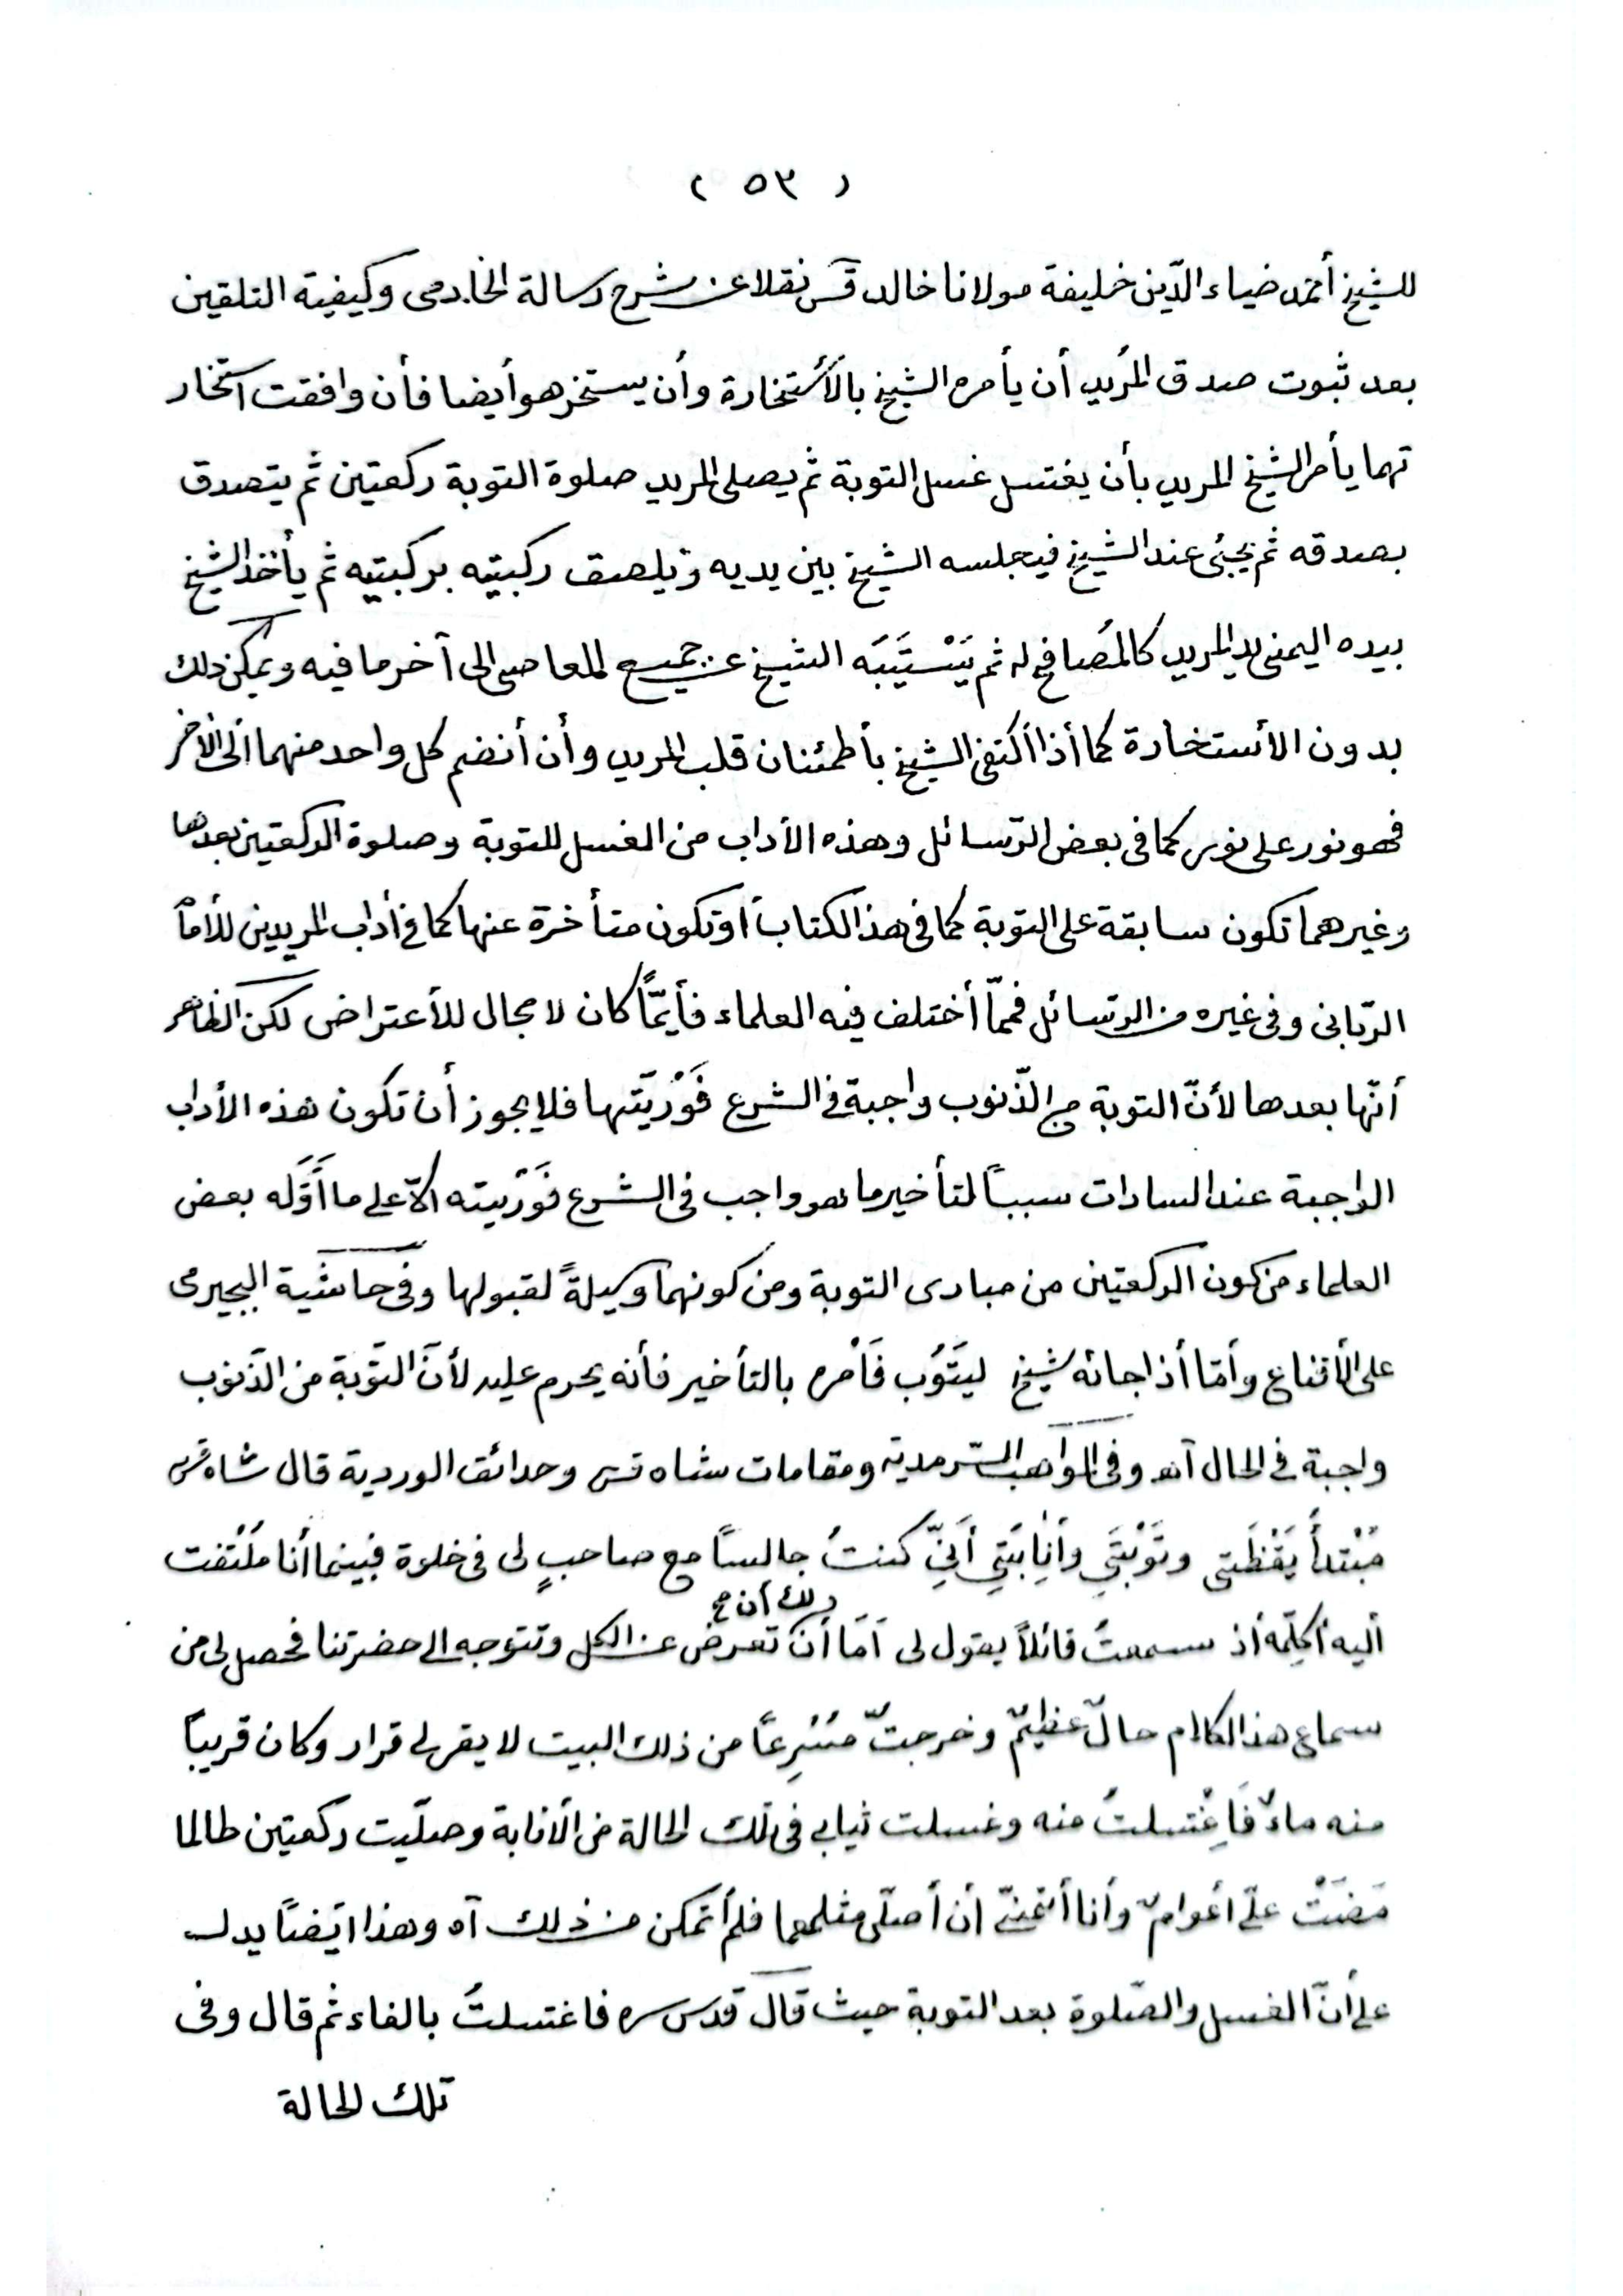 ( ٥٣ )
للشيخ أحمد ضياء الدّين خليفة مولانا خالد قس نقلا عن شرح رسالة الخادمى وكيفية التلقين
بعد ثبوت صدق المُريد أن يأمره الشيخ بالأستخارة وأن يستخر هو أيضا فأن وافقت استخار
تهما يأمر الشيخ المريد بأن يغتسل غسل التوبة ثم يصلى المريد صلوة التوبة ركعتين ثم يتصدق
بصدقه ثم يجئ عند الشيخ فيجلسه الشيخ بين يديه وتلصق ركبتيه بركبتيه ثم يأخذ الشيخ
بيده اليمنى يد المريد كالمُصافح له ثم يَسْتَيِبَه الشيخ عن جميع المعاصى الى آخر ما فيه ويمكن ذلك
بدون الأستخارة كما أذا أكتفى الشيخ بأطمئنان قلب المريد وأن أنضم كل واحد منهما الى الأخر
فهو نور على نور كما فى بعض الرّسائل وهذه الأداب من الغسل للتوبة وصلوة الركعتين بعدها
وغيرهما تكون سابقة على التوبة كما فى هذا الكتاب اوتكون متأخرة عنها كما فى أداب المريدين للأمام
الربّانى وفى غيره من الرّسائل فممّا أختلف فيه العلماء فأيمّاً كان لا مجال للأعتراض لكن الظاهر
أنّها بعدها لأنّ التوبة من الذّنوب واجبة فى الشرع فَوْريّتها فلا يجوز أن تكون هذه الأداب
الواجبة عند السادات سبباً لتأخير ما هو واجب فى الشرع فَوْريته الاّ على ما أَوَّله بعض
العلماء من كون الركعتين من مبادى التوبة ومن كونهما وسيلةً لقبولها وفى حاشية البجيرمى
على الأقناع وأمّا أذا جائه شيخ ليَتُوب فَأمره بالتأخير فأنه يحرم عليه لأنّ التّوبة من الذّنوب
واجبة فى الحال آه وفى المواهب السّرمدية ومقامات شاه قس وحدائق الوردية قال شاه قس
مَبْتدأُ يَقْظَتى وتَوْبَتَي وأنِابَتِي أَنِّي كنتُ جالساً مع صاحبٍ لى فى خلوة فبينما أنا مُلْتفت
أليه أُكلِّمه أذ سمعتُ قائلاً يقول لى اَمَا أنَ لك أن تعرض عن الكل وتتوجه الى حضرتنا فحصل لى من
سماع هذا الكلام حالٌ عظيمٌ وخرجتُ مُسْرِعاً من ذلك البيت لا يقر لى قرار وكان قريباً
منه ماءٌ فَاِغْتسلتُ منه وغسلت ثيابى فى تلك الحالة من الأنابة وصلّيت ركعتين طالما
مَضَتْ علىّ اعوامٌ وأنا أتمنىّ أن أصلّى مثلهما فلم أتمكن من ذلك آه وهذا ايَضاً يدل
على أنّ الغسل والصّلوة بعد التوبة حيث قال قدس سره فاغتسلتُ بالفاء ثم قال وفى
تلك الحالة